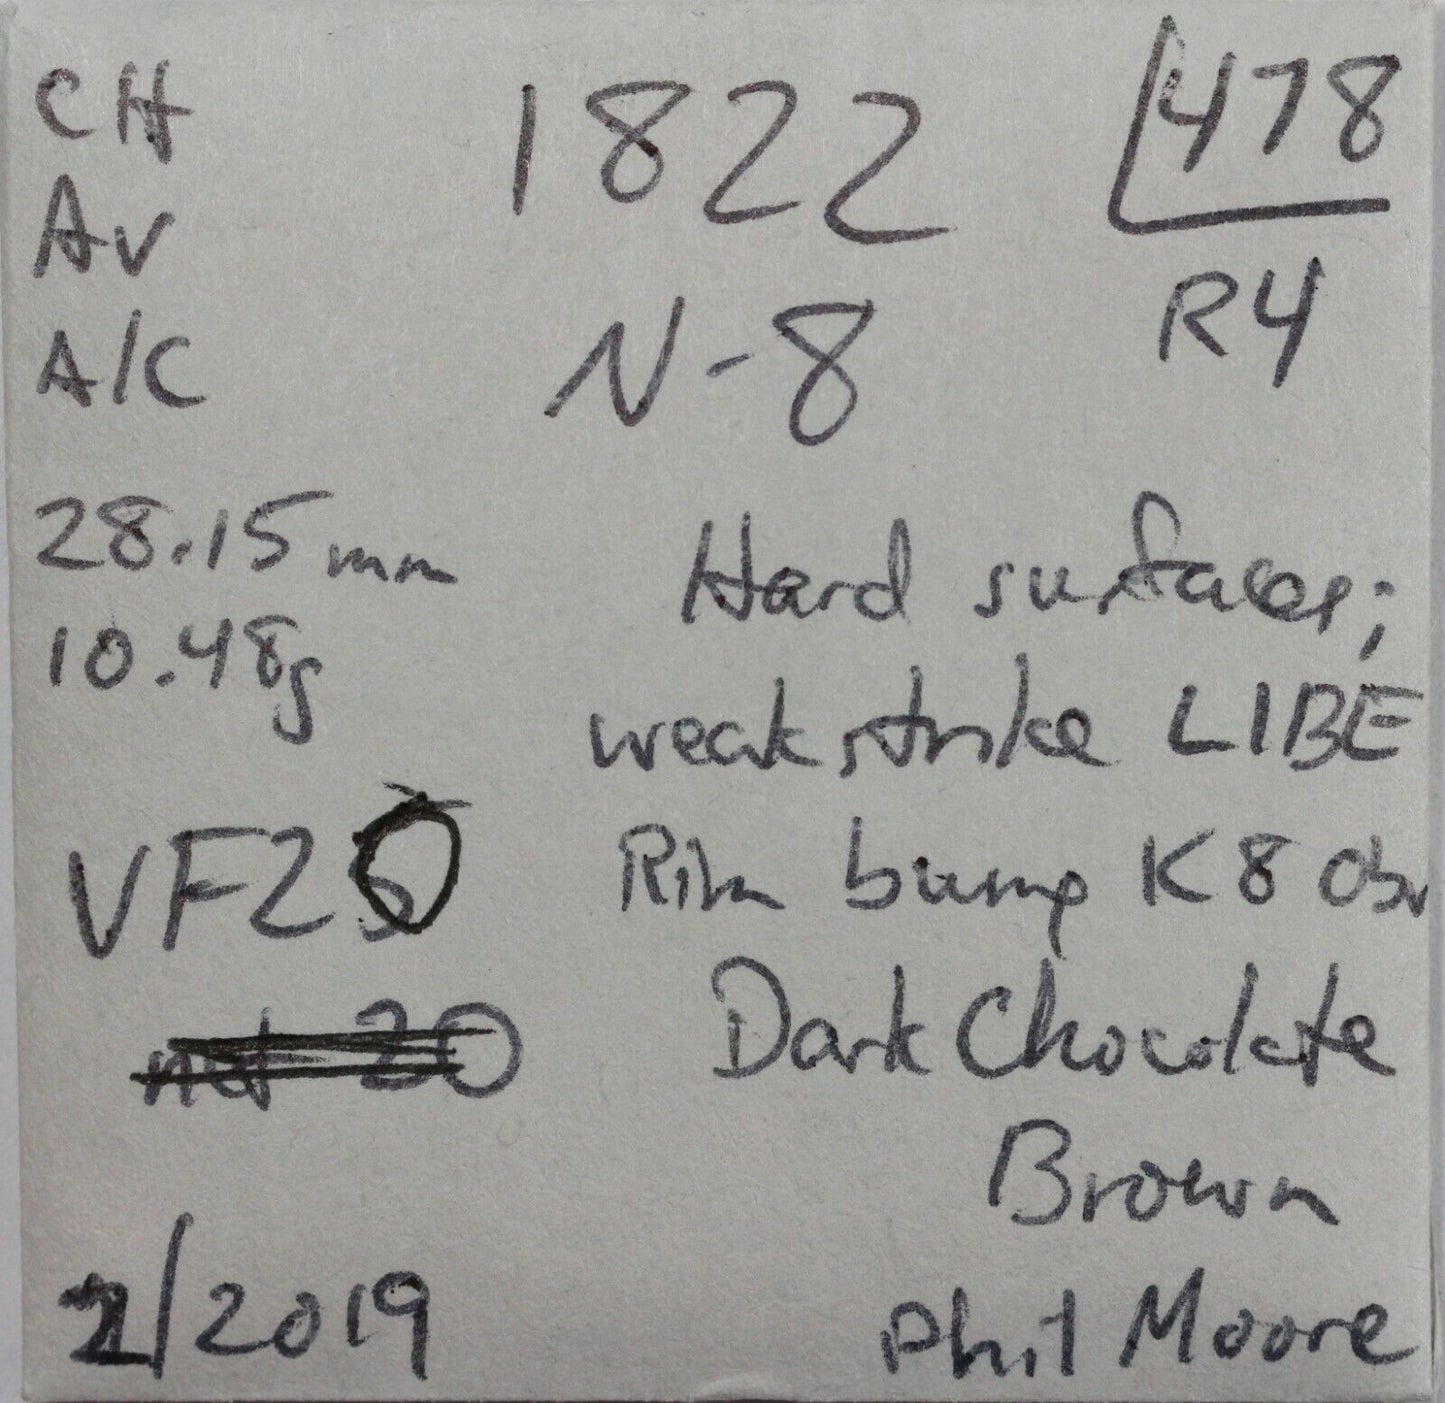 CH
Av
A/C
28.15 mm
10.48g
VF20
net 20
2/2019
1822
N-8
478
R4
Hard surfaces;
weak strike LIBE
Rim bump K8 Obv
Dark Chocolate
Brown
Phil Moore